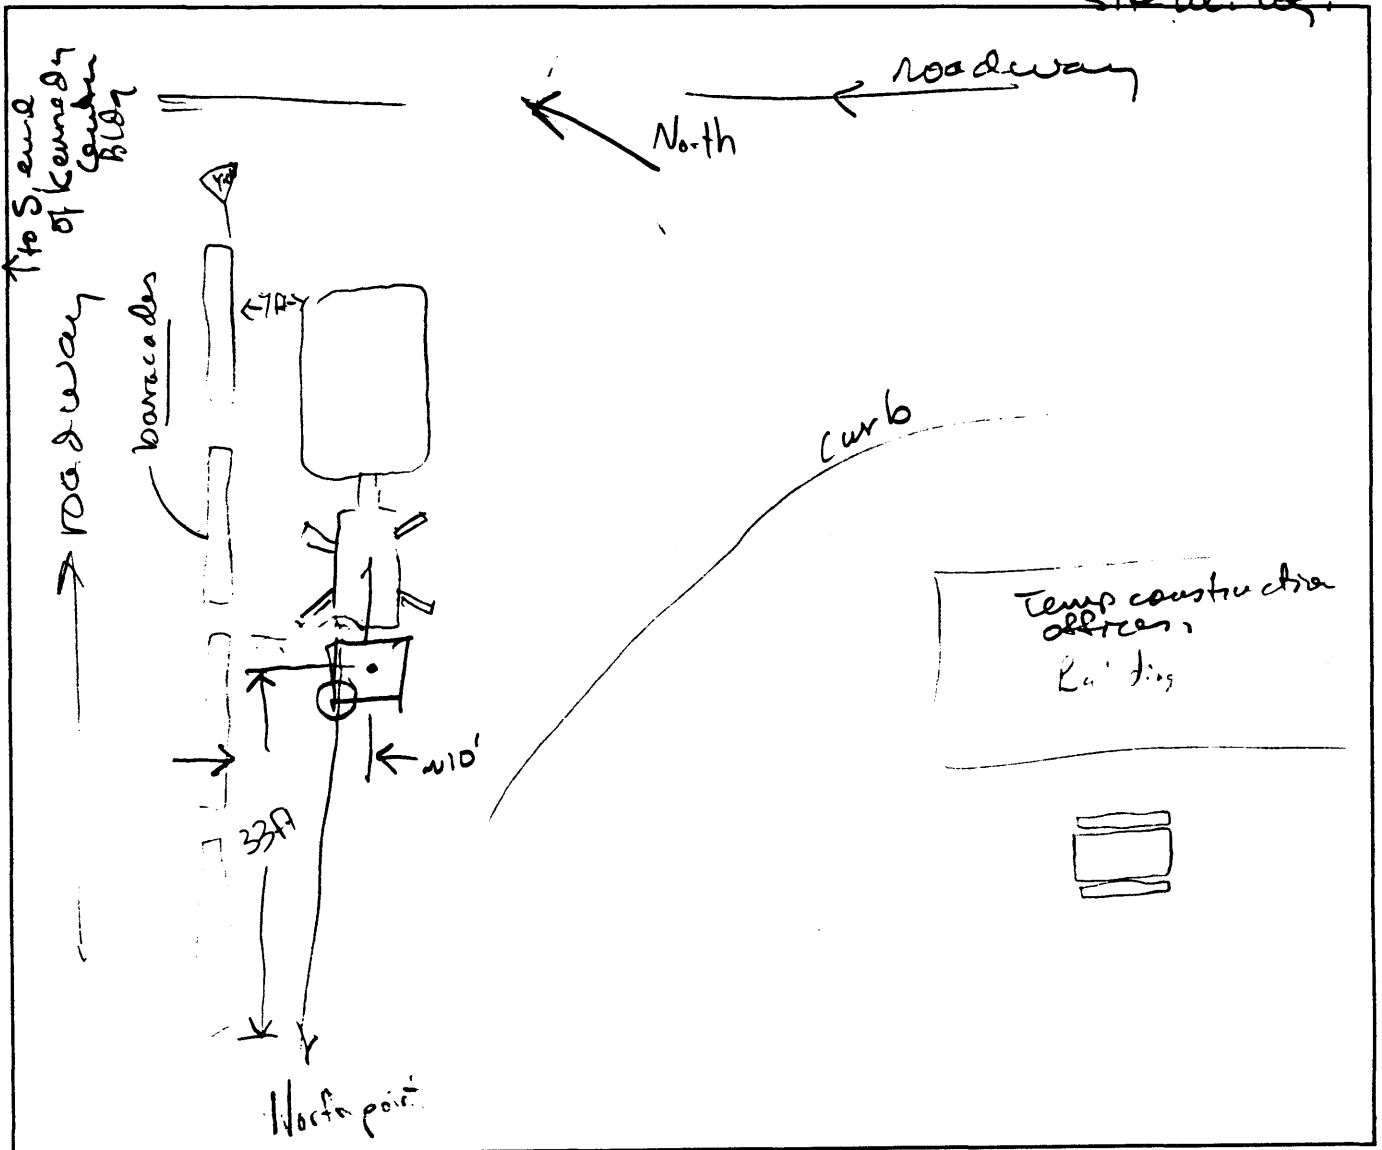 roadway
North
to S, end
of Kennedy
Bldg
roadway
baracades
curb
Temp construction
offices,
~10'
33ft
North point